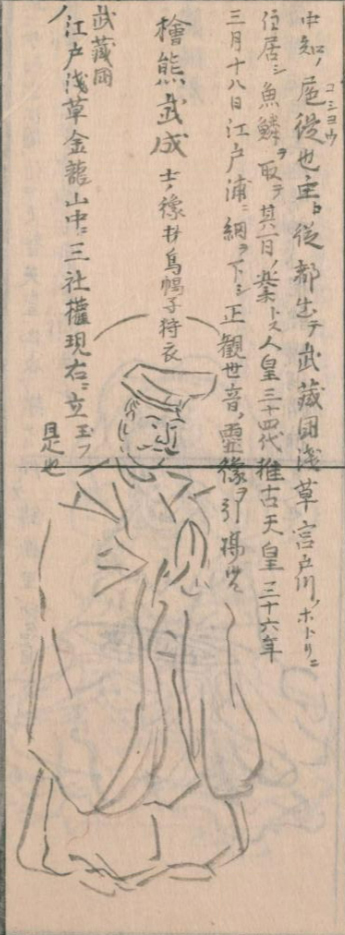 中知ノ扈従也主ト従都出テ武蔵国浅草宮戸川ノホトリニ
コシヨウ
住居シ魚鱗ヲ取テ其一日ノ楽トス人皇三十四代推古天皇三十六年
三月十八日江戸浦ニ網ヲ下シ正観世音ノ霊像ヲ引揚
檜熊武成 士ノ像 烏帽子狩衣
武蔵国
江戸浅草金龍山中ニ三社権現右ニ立玉フ
是也